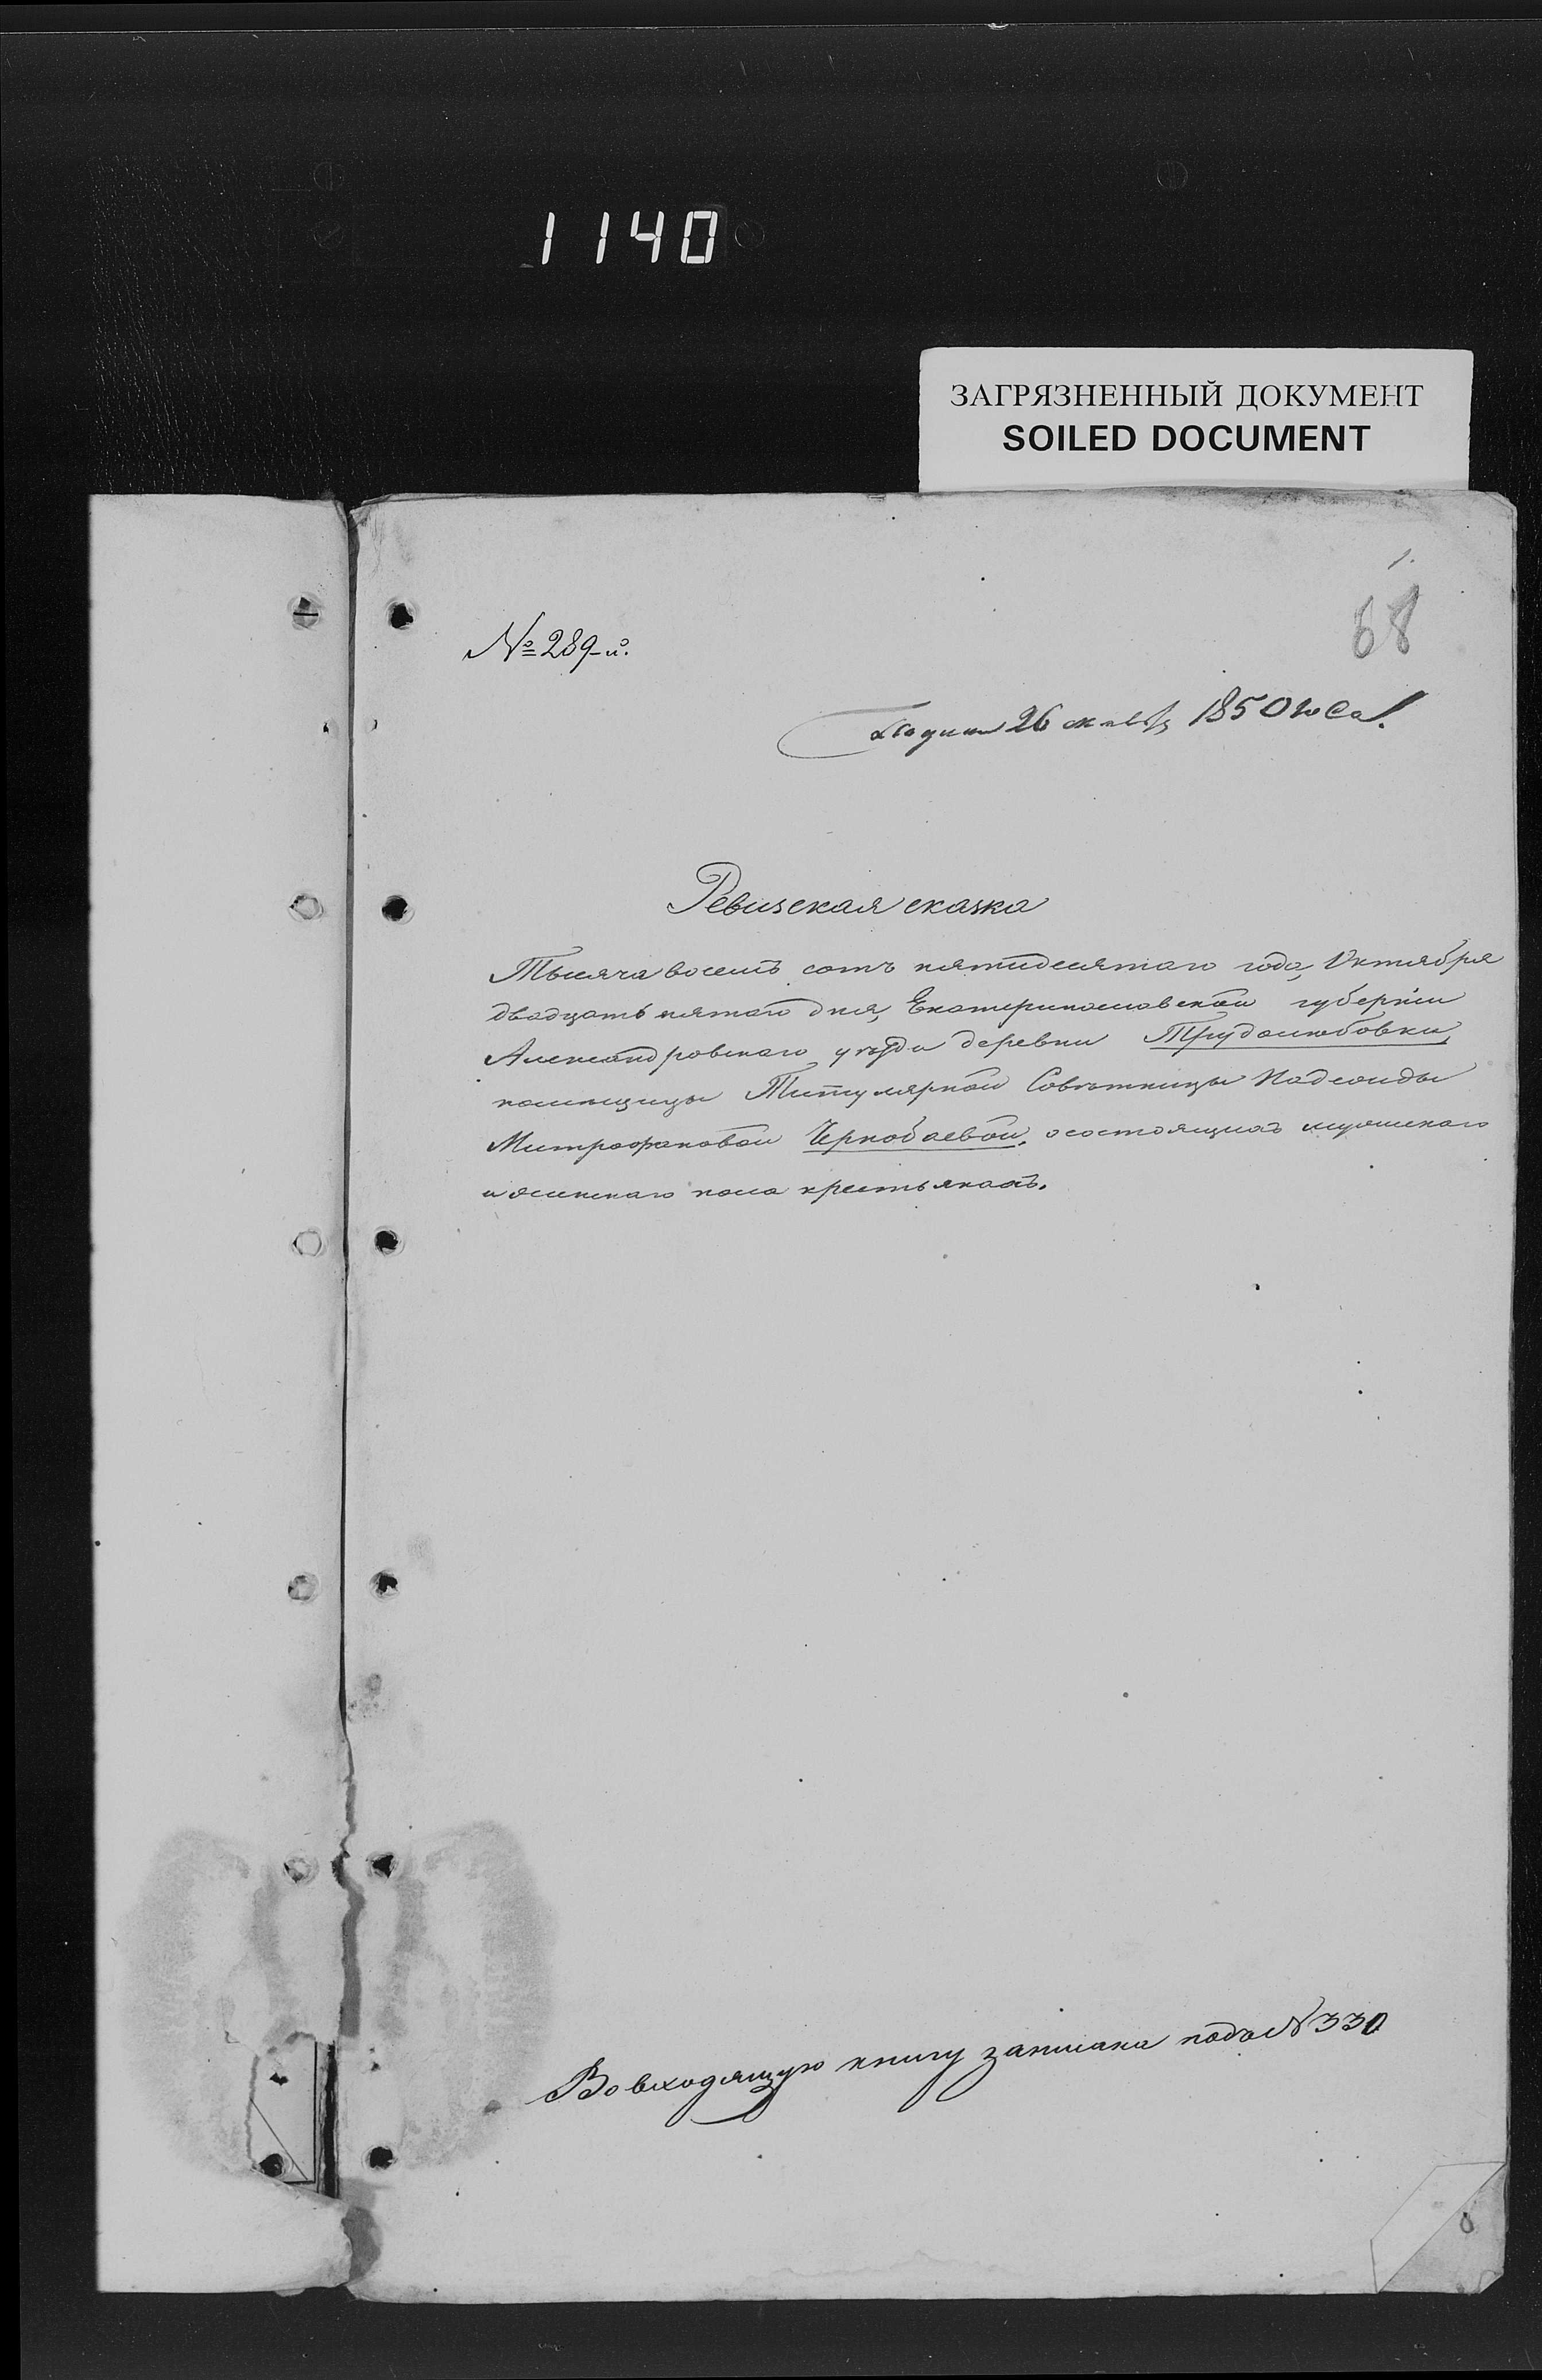 1140
ЗАГРЯЗНЕННЫЙ ДОКУМЕНТ
SOILED DOCUMENT
1.
68
№ 289-й.
26 октября 1850 года
Ревизская сказка
Тысяча восемь сотъ пятидесятаго года, Октября
двадцать пятого дня, Екатеринославской губерніи
Александровскаго уѣзда деревни Трудолюбовки,
помѣщицы Титулярной Совѣтницы Надежды
Митрофановой Чернобаевой, о состоящихъ мужескаго
и женскаго пола крестьянахъ.
Во входящую книгу записана подъ N 330